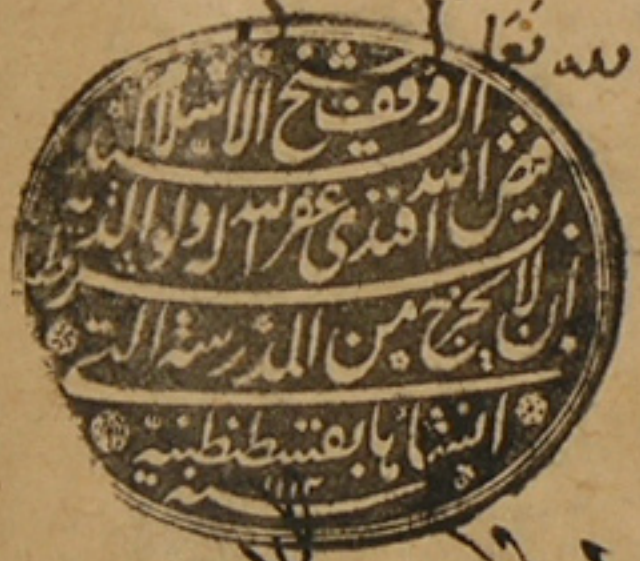 لله تعا
وقف شيخ الاسلام السيد
فيض الله افندى غفر الله له ولوالديه
بشرط ان لا يخرج من المدرسة التى
انشأها بقسطنطنية
سنة ١١١٣